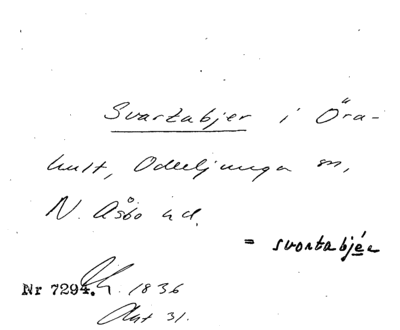 Svartabjer i Öra-
hult, Oderljunga sn,
N. Åsbo hd.
= svartabjér
Nr 7294. 1836
Akt 31.